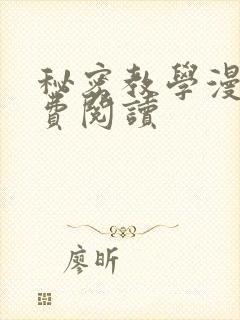 秘密教學漫
費閱讀
廖昕